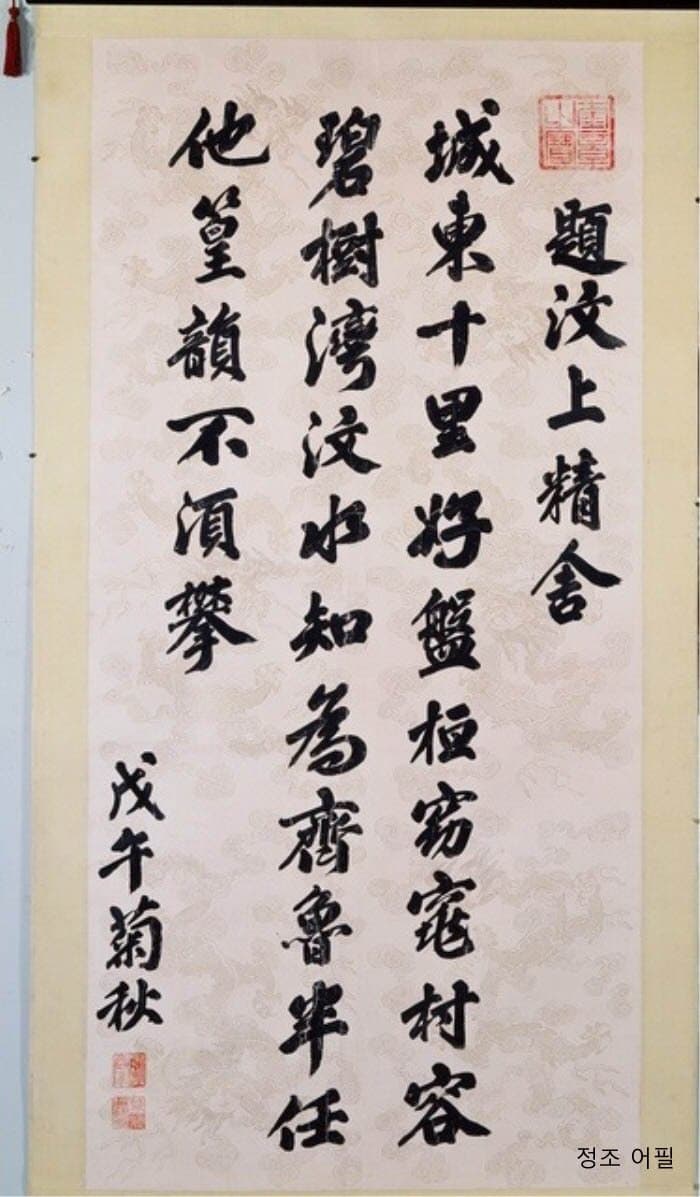 奎章之寶
題汶上精舍
城東十里好盤桓窈窕村容
碧樹灣汶水知為齊魯半任
他篁韻不須攀
戊午菊秋
정조 어필